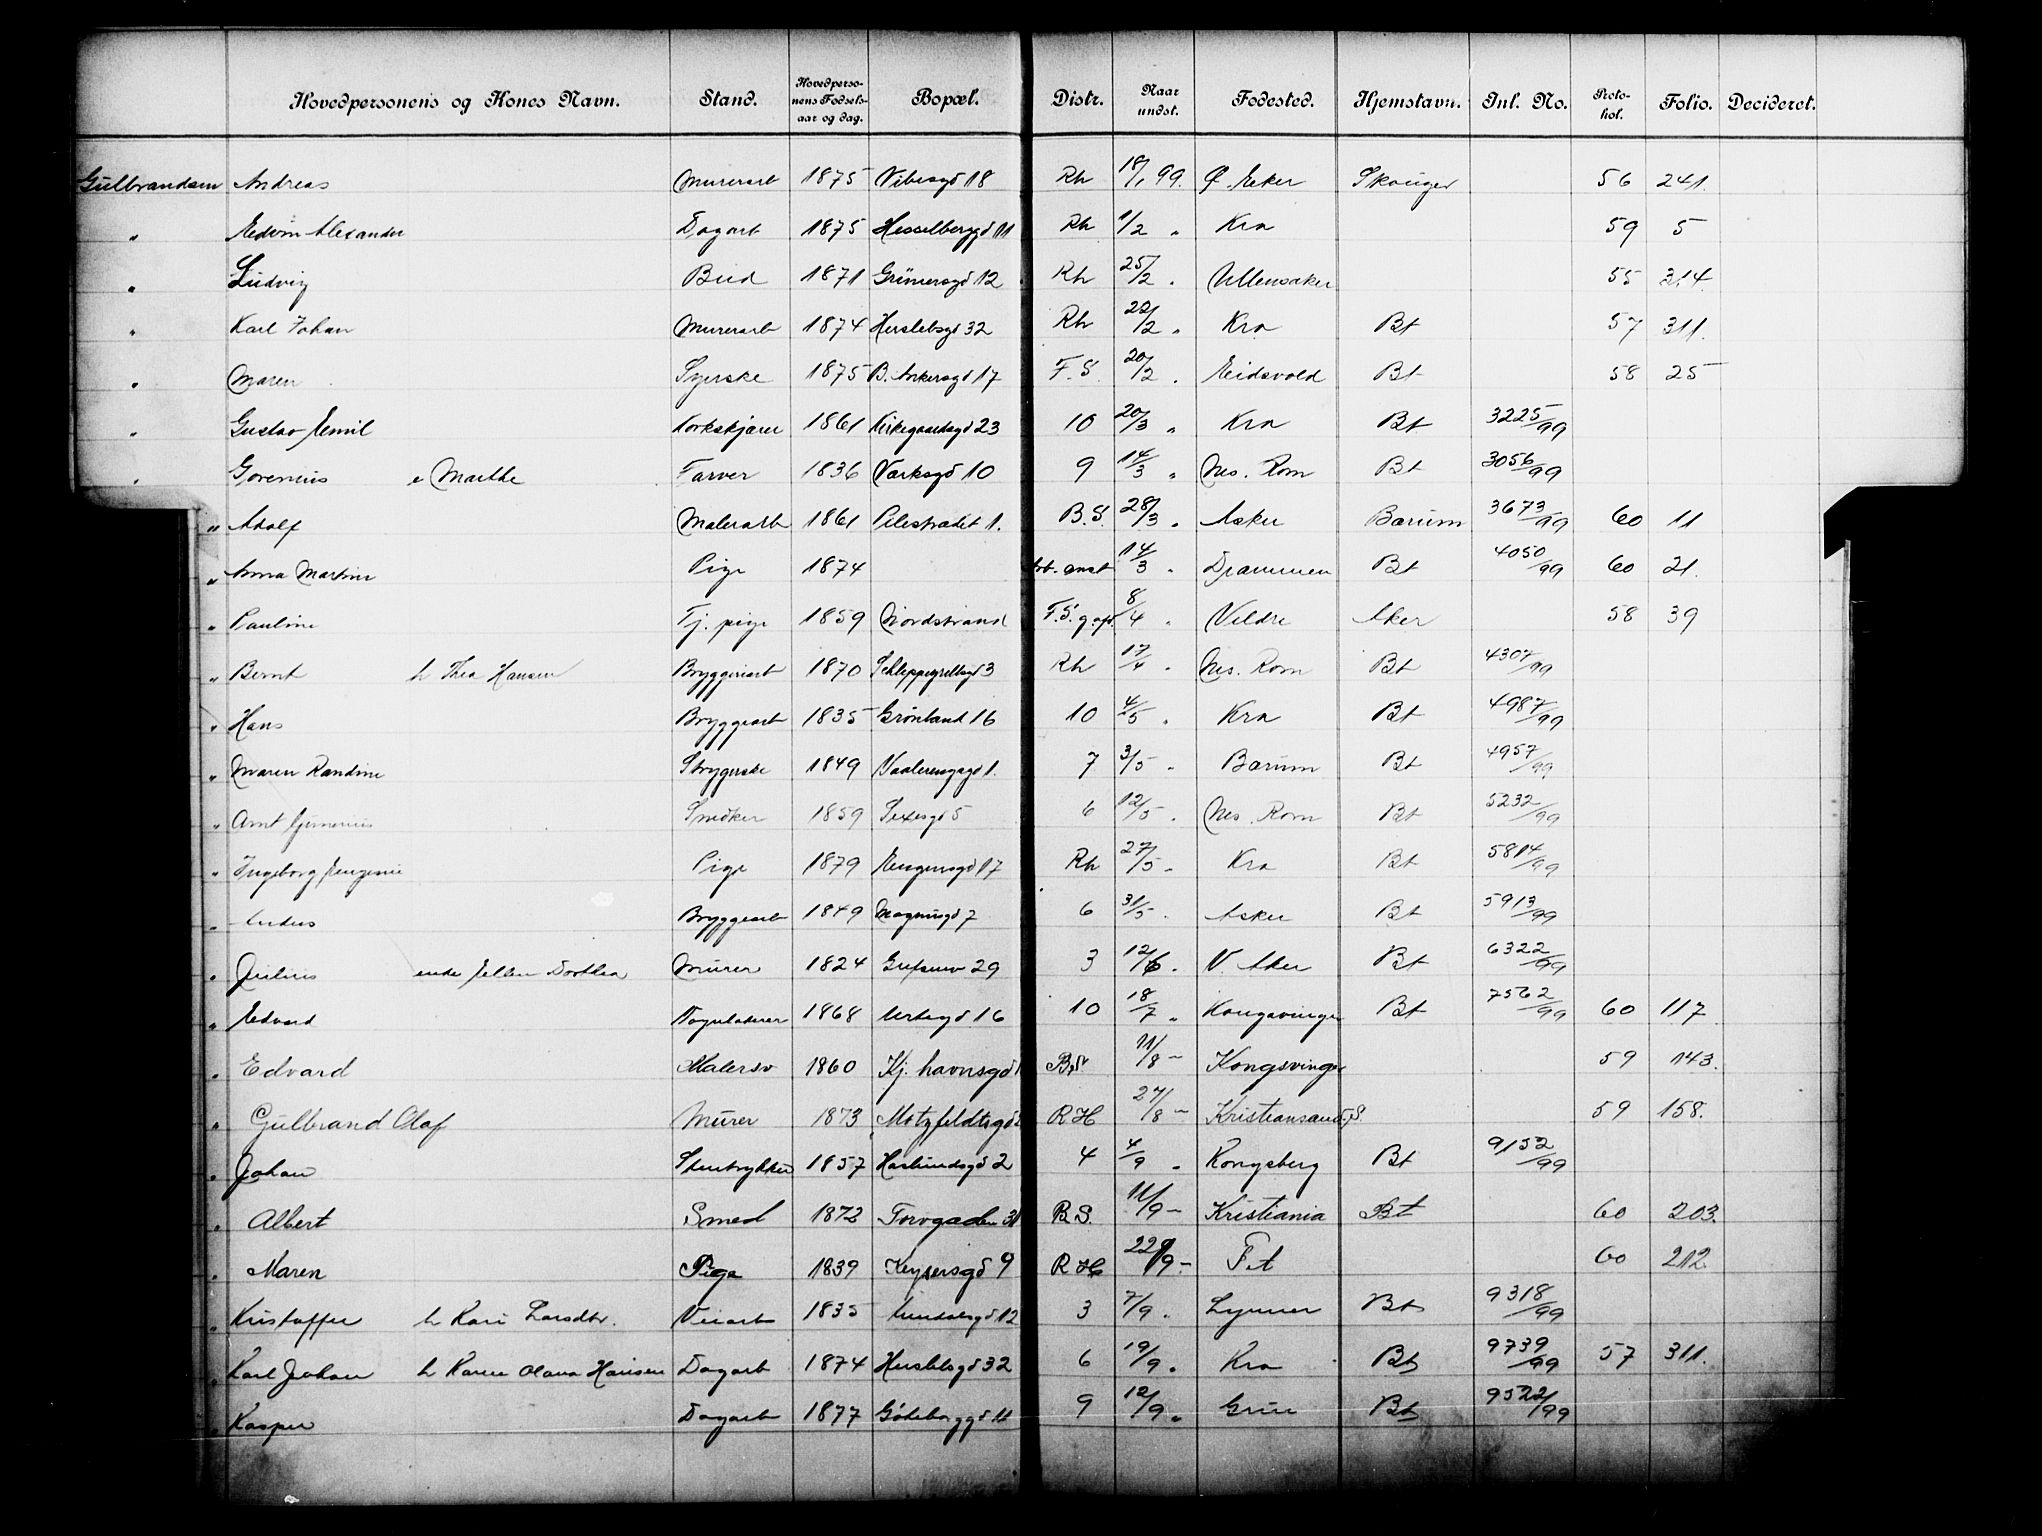 Hovedpersonens og Kones Navn. Stand. Hovedpersonens Fødselsaar og dag. Bopæl. Distr. Naar undst. Fødested. Hjemstavn. Inl. No. Protokol. Folio. Decideret.
Gulbrandsen Andreas Murerarb 1875 Vibesgd 18 Rh 18/1 99. Ø. Eker Skouger 56 241
" Edvin Alexander Dagarb 1875 Hesselberggd 11 Rh 1/2 " Kra 59 5
" Ludvig Bud 1871 Grünersgd 12 Rh 25/2 " Ullensaker 55 314
" Karl Johan Murerarb 1874 Herslebsgd 32 Rh 22/2 " Kra Bt 57 311.
" Maren Syerske 1875 B. Ankersgd 17 F.S. 20/2 " Eidsvold Bt 58 25
" Gustav Emil Korkskjærer 1861 Kirkegaardsgd 23 10 20/3 " Kra Bt 3225/99
" Gorenius e Marthe Farver 1836 Verksgd 10 9 14/3 " Nes. Rom Bt 3056/99
" Adolf Malerarb 1861 Pilestrædet 1. B.S. 28/3 " Asker Bærum 3673/99 60 11
" Anna Martine Pige 1874 Arb. anst 14/3 " Drammen Bt 4050/99 60 21.
" Pauline Tj. pige 1859 Nordstrand F.S. 8/4 " Veldre Aker 58 39
" Bernt h Thea Hansen Bryggeriarb 1870 Schleppegrellsgd 3 Rh 17/4 " Nes. Rom Bt 4307/99
" Hans Bryggearb 1835 Grønland 16 10 4/5 " Kra Bt 4987/99
" Maren Randine Strygerske 1849 Vaalerenggd 1. 7 3/5 " Bærum Bt 4957/99
" Arnt Snedker 1859 Sexesgd 5 6 12/5 " Nes. Rom Bt 5232/99
" Ingeborg Eugenie Pige 1879 Eugensgd 17 Rh 27/5 " Kra Bt 5814/99
" Anders Bryggearb 1849 Magnusgd 7 6 31/5 " Asker Bt 5913/99
" Julius enke Ellen Dorthea Murer 1824 Grefsenv 29 3 12/6 " V. Aker Bt 6322/99
" Edvard 1868 Urtegd 16 10 18/7 " Kongsvinger Bt 7562/99 60 117
" Edvard Malersv 1860 Kj. havnsgd 1 BS 11/8 – Kongsvinger 59 143.
" Gulbrand Olaf Murer 1873 Motzfeldtsgd RH 24/8 – Kristiansand S. 59 158.
" Johan Stentrykker 1857 Haslundsgd 2 4 4/9 " Kongsberg Bt 9152/99
" Albert Smed 1872 Torvgaden 31 B.S. 11/9 – Kristiania Bt 60 203.
" Maren Pige 1839 Keysersgd 9 RH 22/9 – Fet 60 212
" Kristoffer h Kari Larsdtr. Veiarb 1835 12 3 7/9 " Lynner Bt 9318/99
" Karl Johan h Karen Olava Hansen Dagarb 1874 Herslebsgd 32 6 19/9 " Kra Bt 9739/99 57 311.
" Kasper Dagarb 1877 Göteborggd 11 9 12/9 " Grue Bt 9522/99